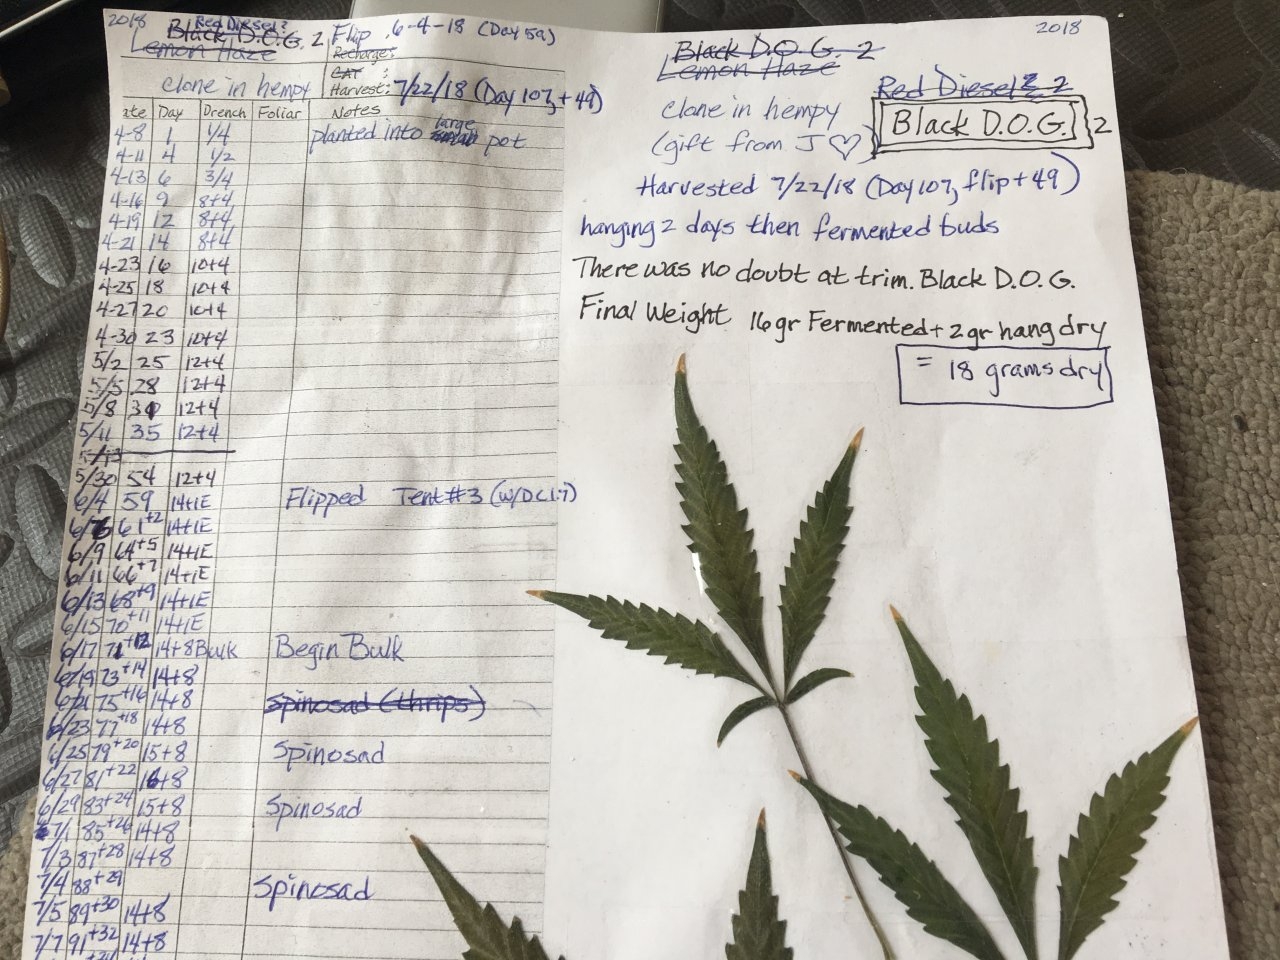 2018 Red Diesel?
Black D.O.G. 2
Lemon Haze
clone in hempy
Flip 6-4-18 (Day 59)
Recharge:
CAT :
Harvest: 7/22/18 (Day 107, +49)
ate Day Drench Foliar Notes
4-8 1 1/4 planted into small large pot
4-11 4 1/2
4-13 6 3/4
4-16 9 8+4
4-19 12 8+4
4-21 14 8+4
4-23 16 10+4
4-25 18 10+4
4-27 20 10+4
4-30 23 10+4
5/2 25 12+4
5/5 28 12+4
5/8 31 12+4
5/11 35 12+4
5/13
5/30 54 12+4
6/4 59 14+1E Flipped Tent #3 (w/DC1:7)
6/6 61+2 14+1E
6/9 64+5 14+1E
6/11 66+7 14+1E
6/13 68+9 14+1E
6/15 70+11 14+1E
6/17 71+12 14+8 Bulk Begin Bulk
6/19 73+14 14+8
6/21 75+16 14+8 Spinosad (thrips)
6/23 77+18 14+8
6/25 79+20 15+8 Spinosad
6/27 81+22 16+8
6/29 83+24 15+8 Spinosad
7/1 85+26 14+8
7/3 87+28 14+8
7/4 88+29 Spinosad
7/5 89+30 14+8
7/7 91+32 14+8
2018
Black D.O.G. 2
Lemon Haze
Red Diesel? 2
clone in hempy
Black D.O.G. 2
(gift from J ♡)
Harvested 7/22/18 (Day 107, flip+49)
hanging 2 days then fermented buds
There was no doubt at trim. Black D.O.G.
Final Weight 16gr Fermented + 2gr hang dry
= 18 grams dry